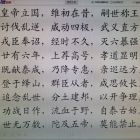 皇帝立国，维初在昔，嗣世称王
讨伐乱逆，威动四极，武义直方
戎臣奉诏，经时不久，灭六暴强
廿有六年，上荐高号，孝道显明
既献泰成，乃降专惠，亲巡远方
登于绎山，群臣从者，咸思攸长
追念乱世，分土建邦，以开争理
功战日作，流血于野，自泰古始